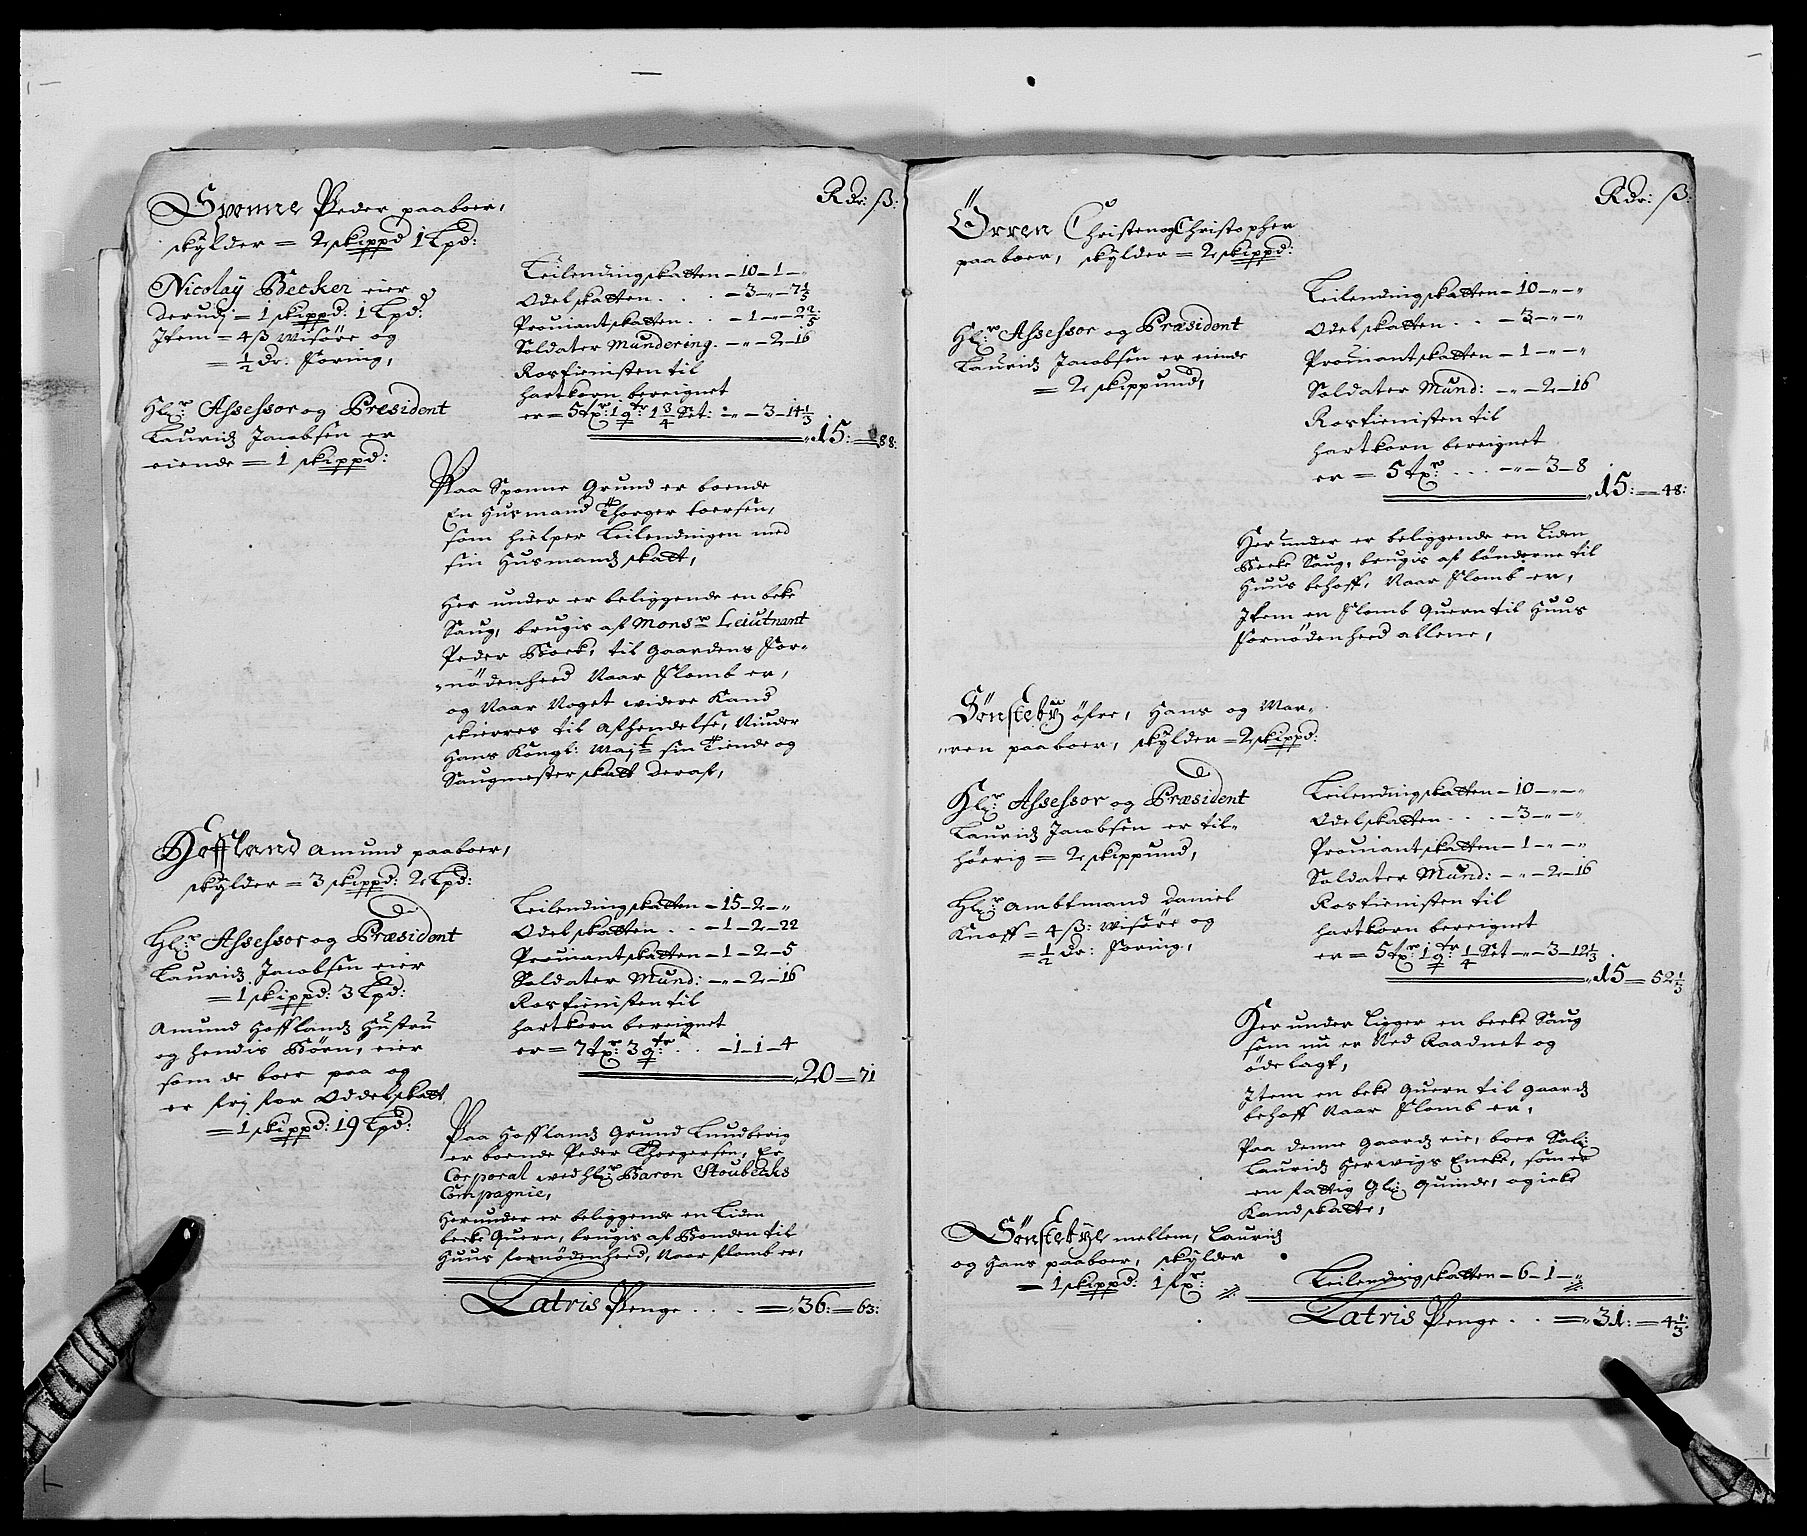 Rdr: ß:
Sponne Peder paaboer,
skylder = 2 skippd 1 Lpd:
Nicolaÿ Becker eier
derudj = 1 skippd: 1 Lpd:
Item = 4 ß wisöre og
= ½ dr: foring,
Hl:r Assessor og President
Lauridz Jacobsen er
eiende = 1 skippd:
Leilendingskatten – 10 – 1 – „
Odelskatten . . . – 3 – „ – 7 1/5
Prouiantskatten . . – 1 – „ – 2 2/5
Soldater Mundering. – „ – 2 – 16
Rostienisten til
hartkorn bereignet
er = 5 tx:r 1 q:tr 1 3/4 Set: – „ – 3 – 14 1/3
15: – 88:
Paa Sponne Grund er boende
En Husmand Thorger boersen,
som hielper Leilendingen med
sin Husmandz skatt,
Her under er beliggende en beke
Saug, brugis af Monsr Leiutnant
Peder Boek, til Gaardens For-
nödenheed Naar Flomb er,
og Naar Noget widere Kand
skierres til afhendelse, Niuder
Hans Kongl: Majt sin Tiende og
Saugmester skatt deraf,
Hoffland Amund paaboer,
skylder = 3 skippd: 2 Lpd:
Hl:r Assessor og Præsident
Lauridz Jacobsen eier
= 1 skippd: 3 Lpd:
Amund Hofflandz Hustrü
og hendis Börn, eier
som de boer paa og
er frj for Oddelskatt,
= 1 skippd: 19 Lpd:
Leilendingskatten – 15 – 2 – „
Odelskatten . . – 1 – 2 – 22
Prouiantskatten – 1 – 2 – 5
Soldater Mund: – „ – 2 – 16
Rostienisten til
hartkorn bereignet
er = 7 tx:r 3 q:tr . . – 1 – 1 – 4
20 = 71
Paa Hofflandz Grund Lundberig
er boende Peder Thorgersen, Er
Corporal wed hl:r Baron Stoubecks
Compagnie,
Herunder er beliggende en Liden
becke Quern, brugis af Bonden til
Huus fornödenheed, Naar flomb er,
Latris Penge . . . = 36: = 63:
Rdr: ß:
Örren Christen og Christopher
paaboer, skylder = 2 skippd:
Hl:r Assessor og Præsident
Lauridz Jacobsen er eiende
= 2 skippund,
Leilendingskatten – 10 – „ – „
Odelskatten . . – 3 – „ – „
Prouiantskatten – 1 – „ – „
Soldater Mund: – „ – 2 – 16
Rostienisten til
hartkorn bereignet
er = 5 tx:r . . . – „ – 3 – 8
15: – 48:
Her under er beliggende en Liden
Becke Saug, brugis af bönderne til
Huus behoff, Naar Flomb er,
Item en Flomb Quern til Huus
Fornödenheed allene,
Sönstebÿ öfre, Hans og Mor-
ren paaboer, skylder = 2 skippd:
Hl:r Assessor og Præsident
Lauridz Jacobsen er til-
höerig = 2 skippund,
Hl:r Ambtmand Daniel
Knoff = 4 ß: Wisöre og
= ½ dr: Foring,
Leilendingskatten – 10 – „ – „
Odelskatten . . . – 3 – „ – „
Prouiantskatten – 1 – „ – „
Soldater Mund: – „ – 2 – 16
Rostienisten til
hartkorn bereignet
er = 5 tx:r 1 q:tr 1/4 Set – „ – 3 – 12 1/3
15 = 52 1/3
Her under Ligger en becke Saug
som nu er Ned Raadnet og
ödelagt,
Item en beke Quern til Gaardz
behoff Naar Flomb er,
Paa denne Gaardz eie, boer Sal:
Lauridz Herwigs Encke, som er
en fattig Gl: Quinde, og icke
Kand skatte,
Sönstebÿe mellem, Lauridz
og Hans paaboer, skylder
= 1 skippd: 1 fx:r
Leilendingskatten – 6 – 1 – „
Latris Penge . . = 31: = 4 1/3: